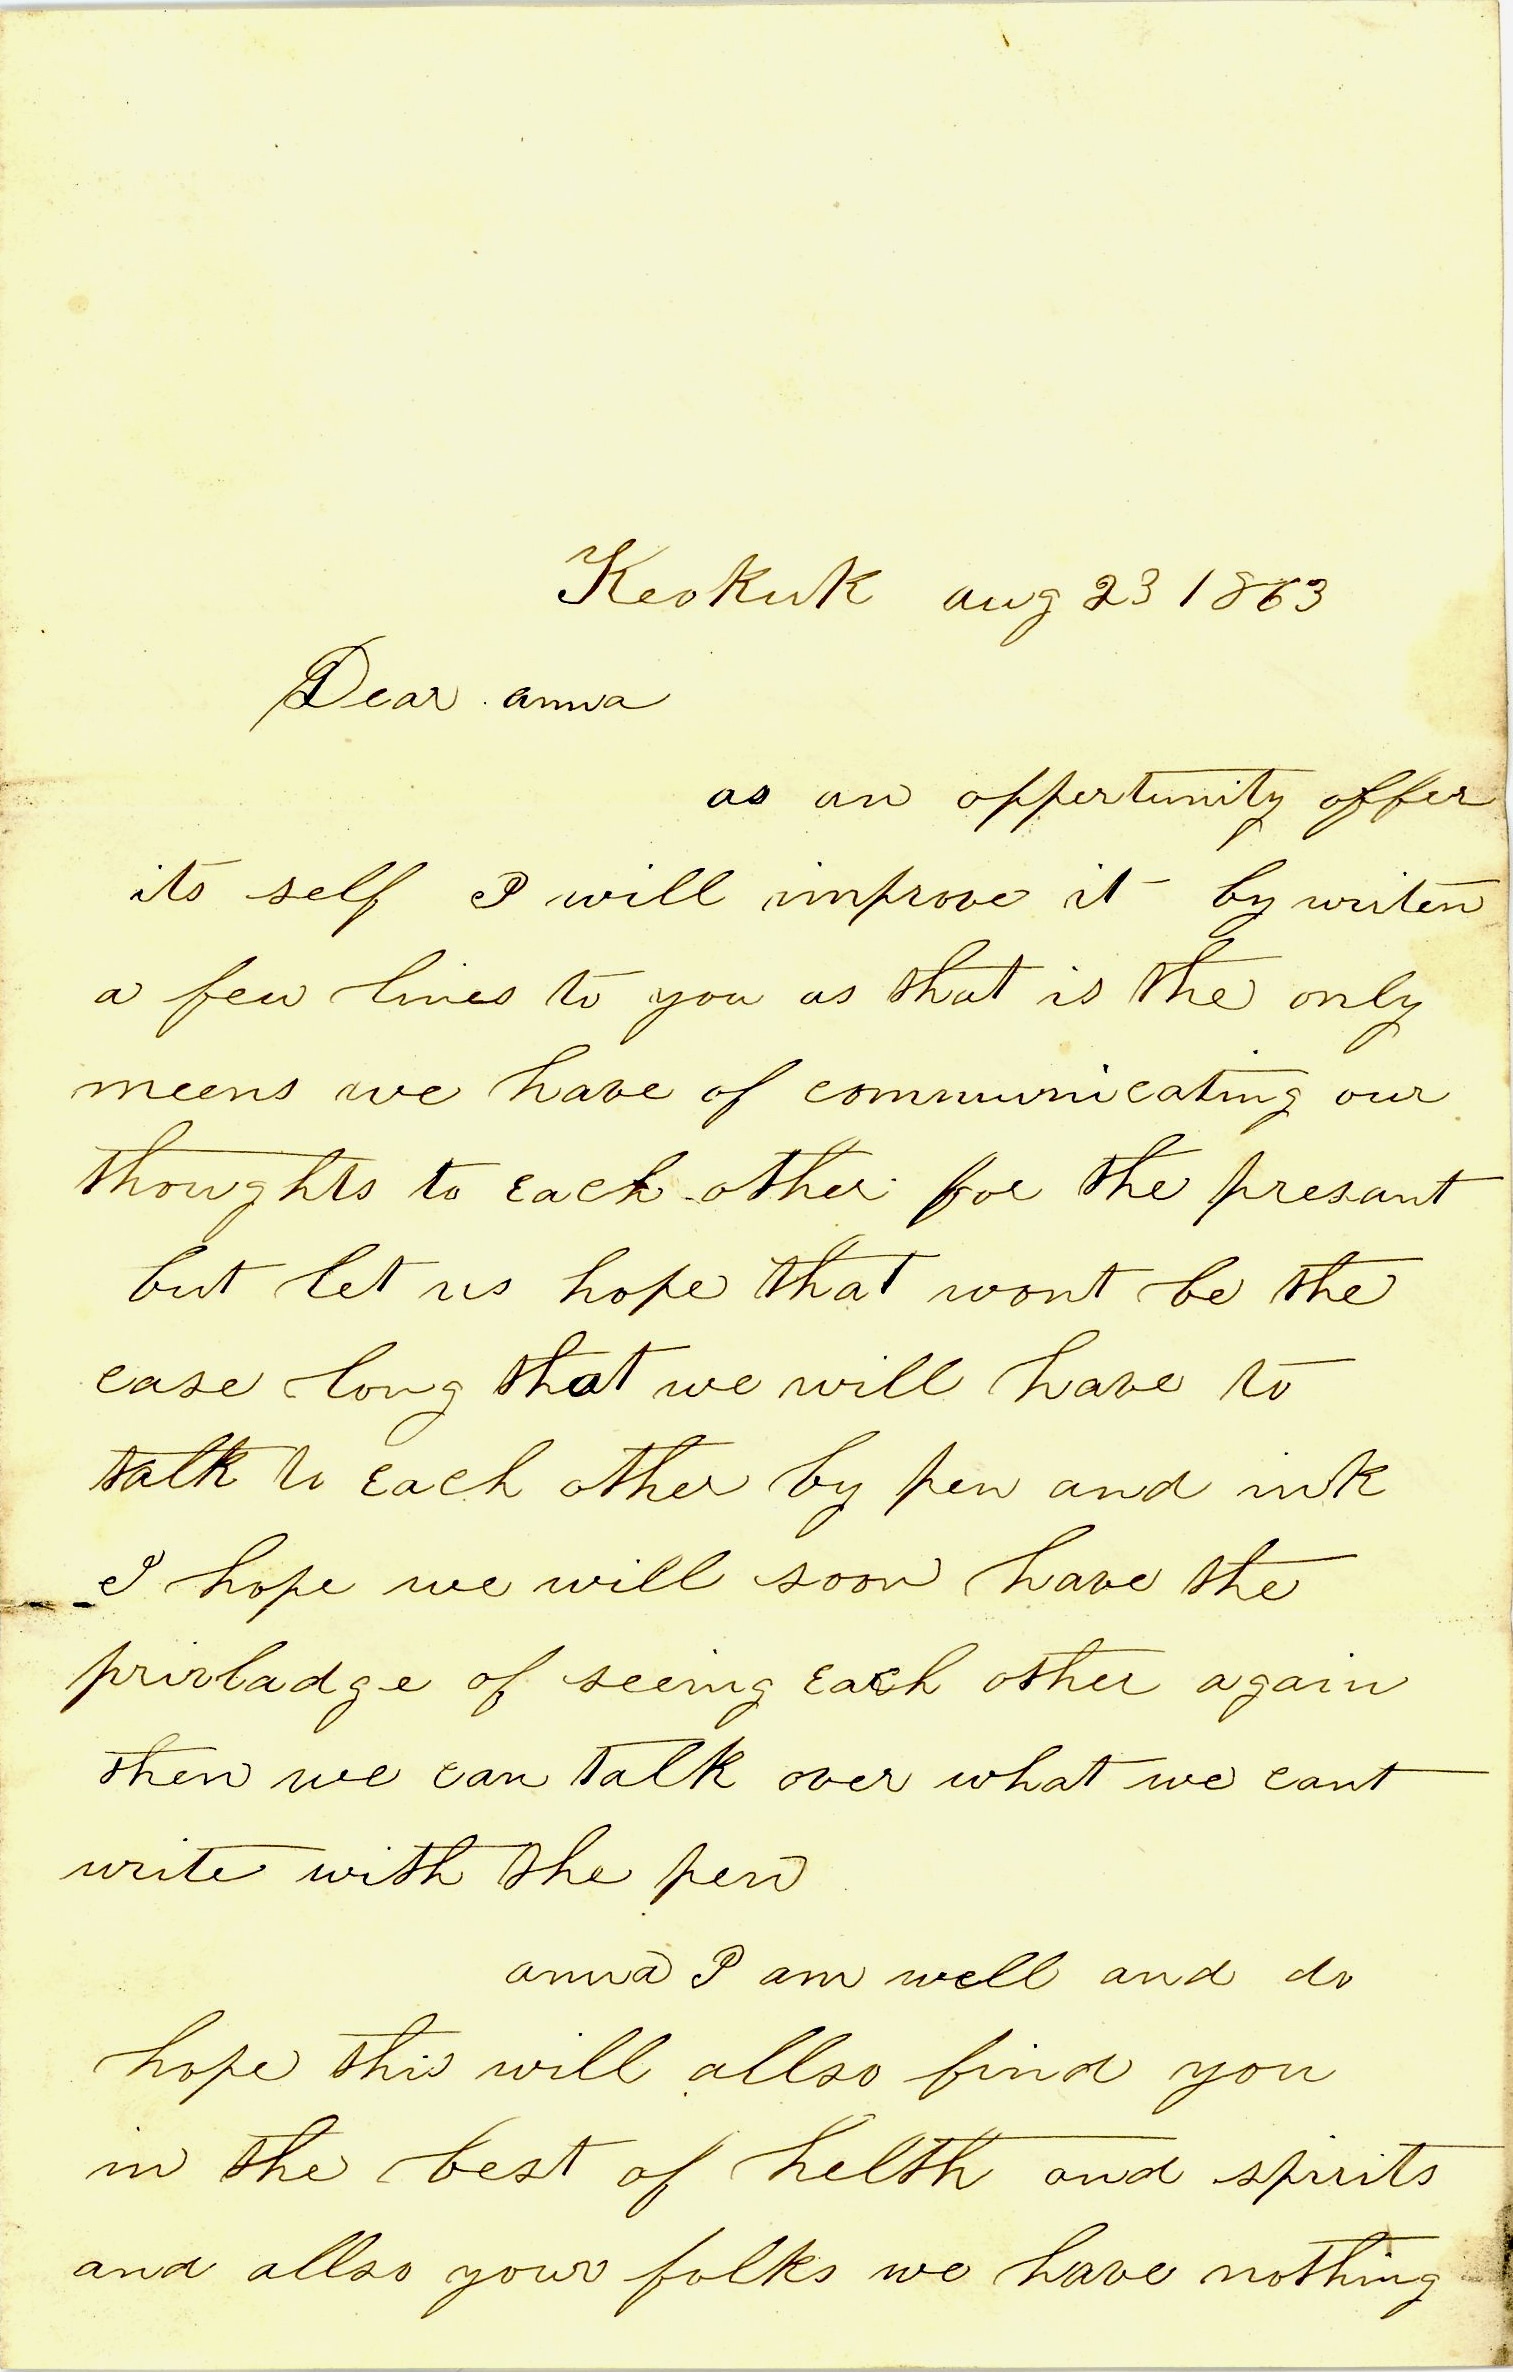 Keokuk aug 23 1863
Dear anna
as an oppertunity offer
its self I will improve it by writen
a few lines to you as that is the only
meens we have of communicating our
thoughts to each other for the presant
but let us hope that wont be the
case long that we will have to
talk to each other by pen and ink
I hope we will soon have the
privladge of seeing each other again
then we can talk over what we cant
write with the pen
anna I am well and do
hope this will allso find you
in the best of helth and spirits
and allso your folks we have nothing